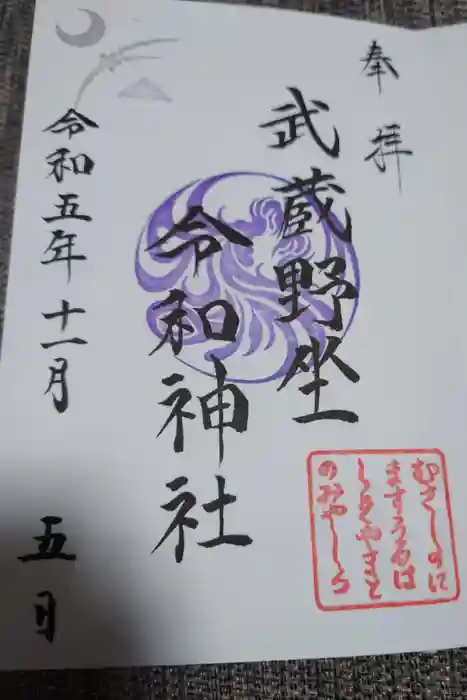 奉拝
武蔵野坐
令和神社
令和五年十一月
五日
むさしのに
ますうるは
しきやまと
のみやしろ